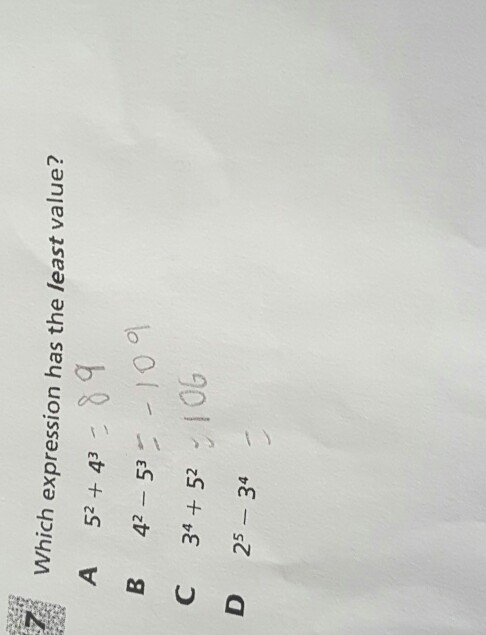 7 Which expression has the least value?
A 5² + 4³ = 89
B 4² – 5³ = -109
C 3⁴ + 5² = 106
D 2⁵ – 3⁴ =